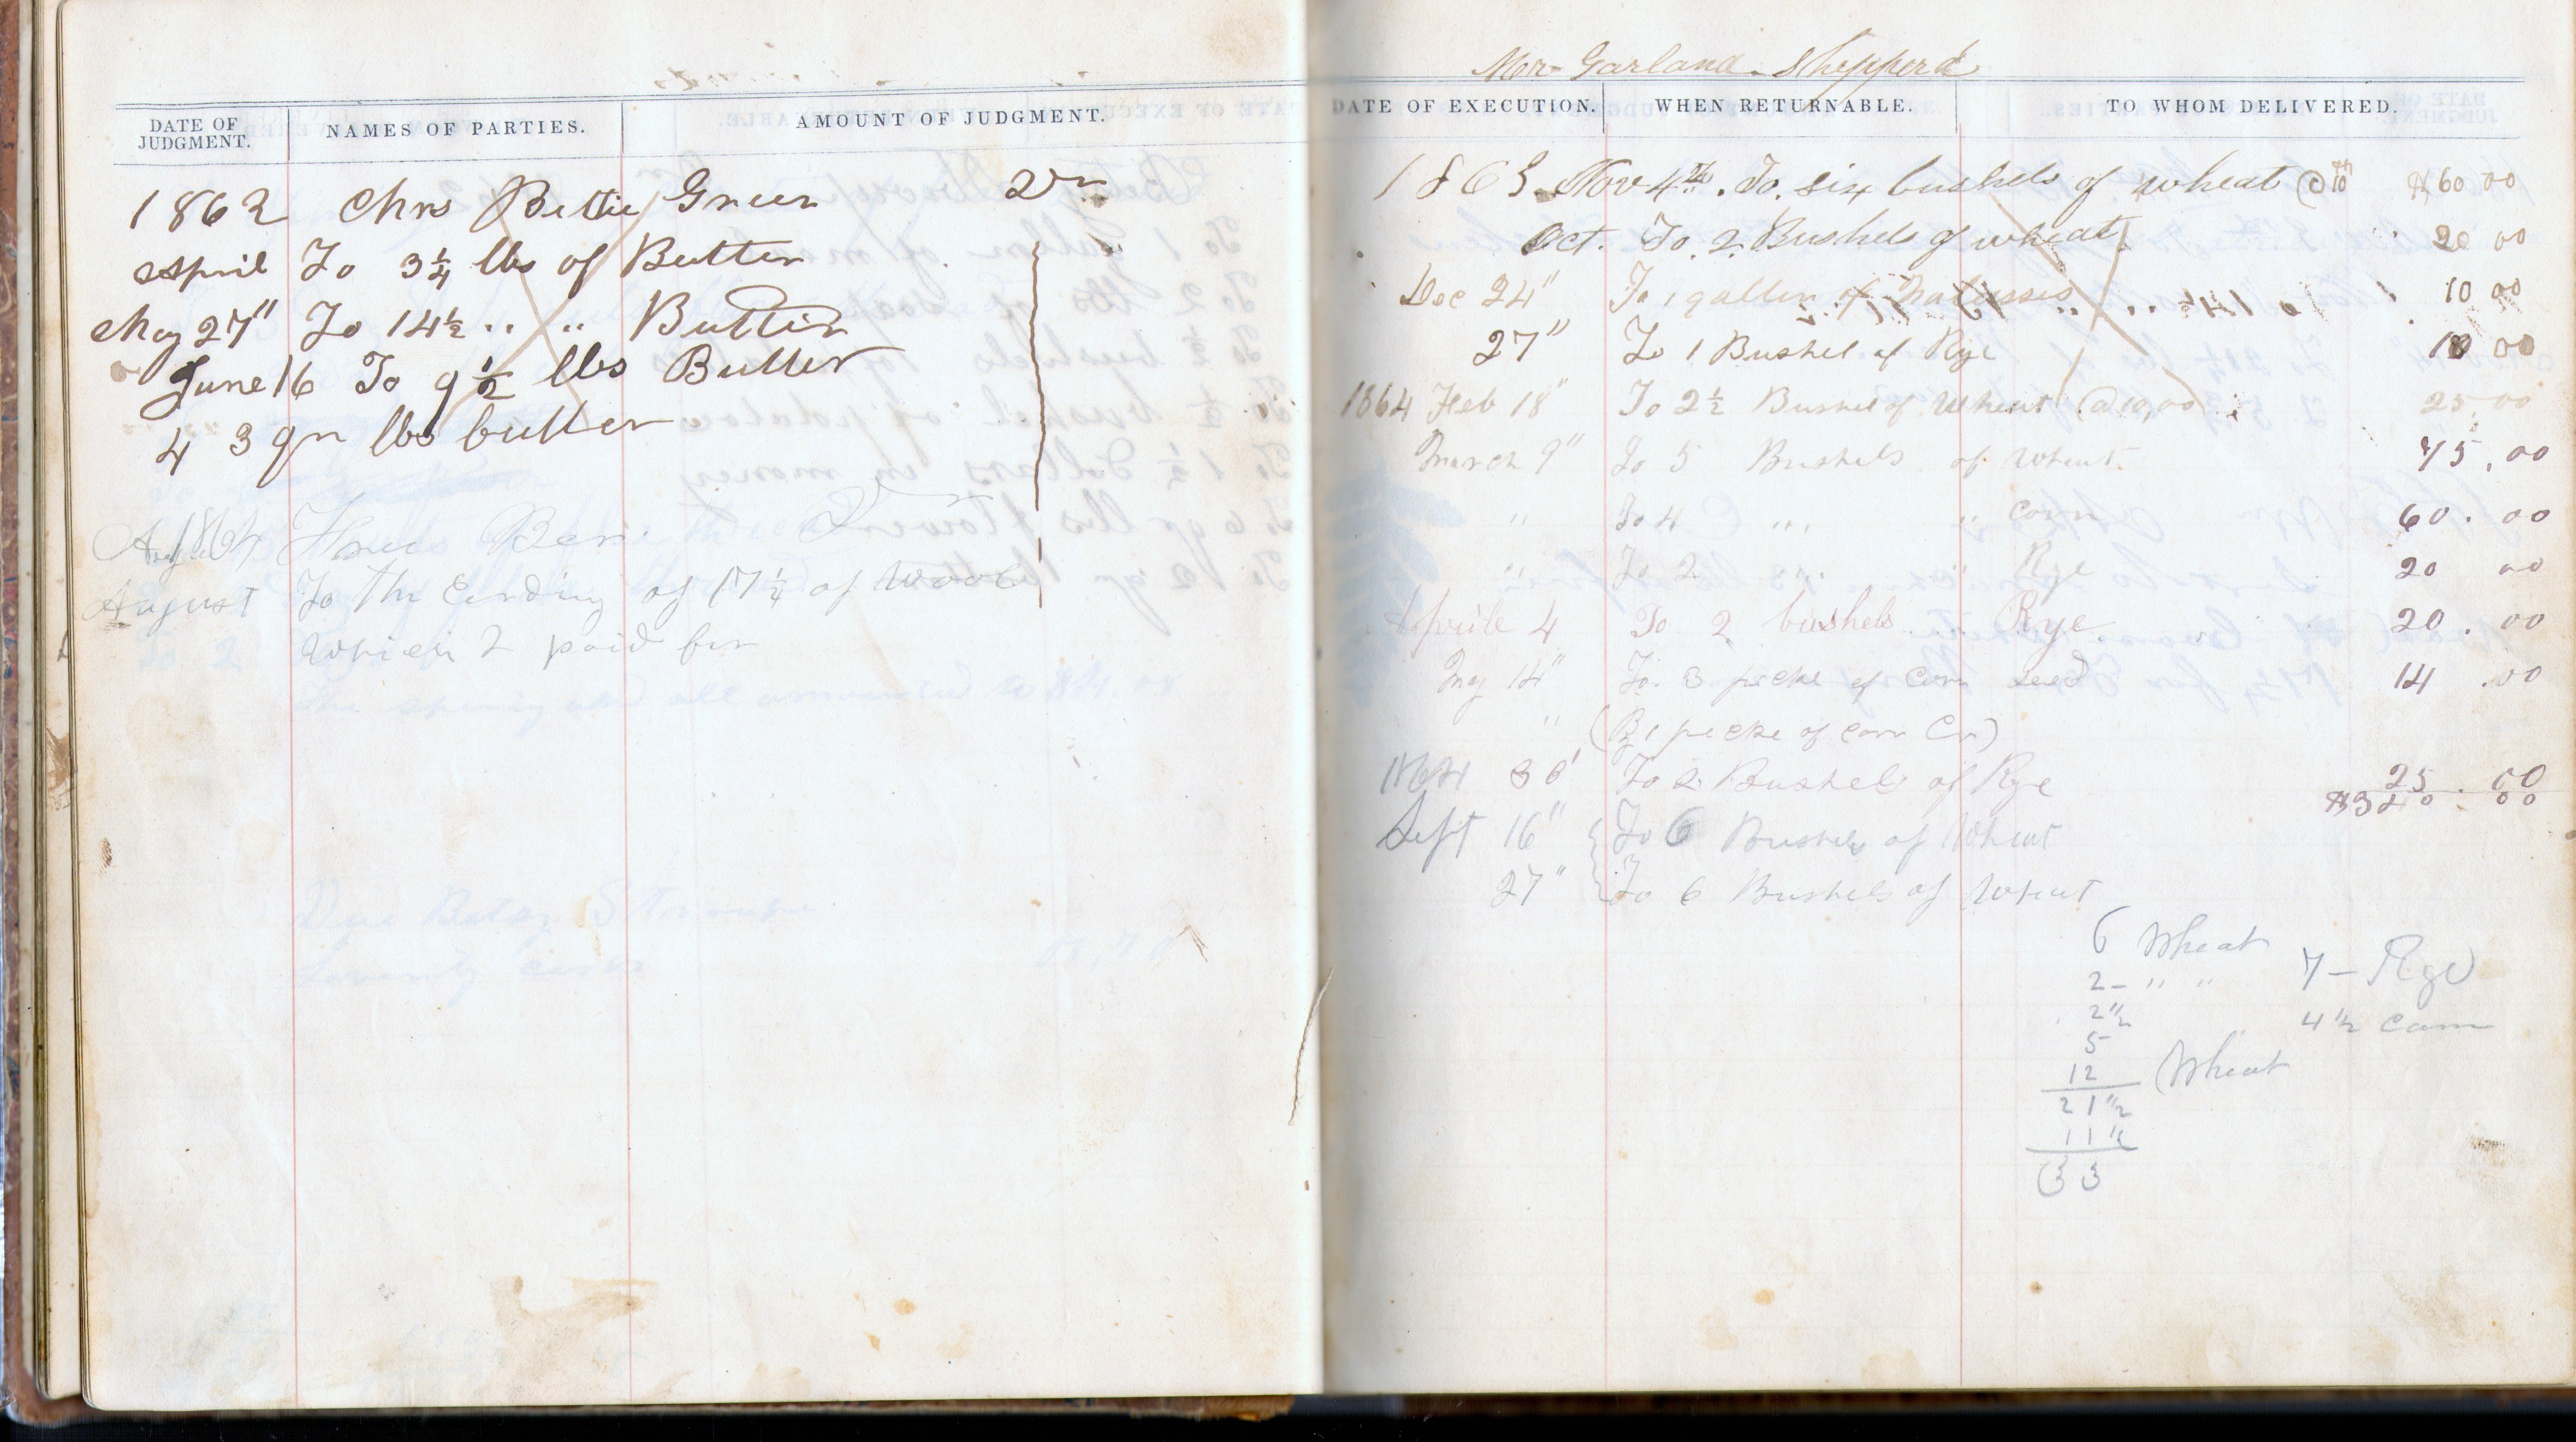 DATE OF JUDGMENT.
NAMES OF PARTIES.
AMOUNT OF JUDGMENT.
1862 Mrs Bettie Green Dr
April To 3 1/4 lbs of Butter
May 27" To 14 1/2 " " Butter
June 16 To 9 1/2 lbs Butter
4 3 qr lbs butter
Aug 1864
August To the Carding of 17 1/4 of Wool
Which I paid for
Mr Garland Shepperd
DATE OF EXECUTION.
WHEN RETURNABLE.
TO WHOM DELIVERED.
1863 Nov 4th. To. six bushels of wheat @ $10 $60 00
Oct. To. 2 Bushels of wheat. 20 00
Dec 24" To 1 gallon of Molasses 10 00
27" To 1 Bushel of Rye 10 00
1864 Feb 18" To 2 1/2 Bushel of Wheat @ 10,00 25 00
March 9" To 5 Bushels of Wheat. 75.00
" To 4 " " Corn 60.00
" To 2 " " Rye 20 00
Aprile 4 To 2 bushels Rye 20.00
May 14" To 3 pecke of Corn seed 14.00
" (By 1 pecke of corn Cr)
1864 30' To 2 Bushels of Rye 25.00
$340.00
Sept 16" To 6 Bushels of Wheat
27" To 6 Bushels of Wheat
6 Wheat
2 - " " 7 - Rye
2 1/2 4 1/2 Corn
5
12 Wheat
21 1/2
11 1/2
33